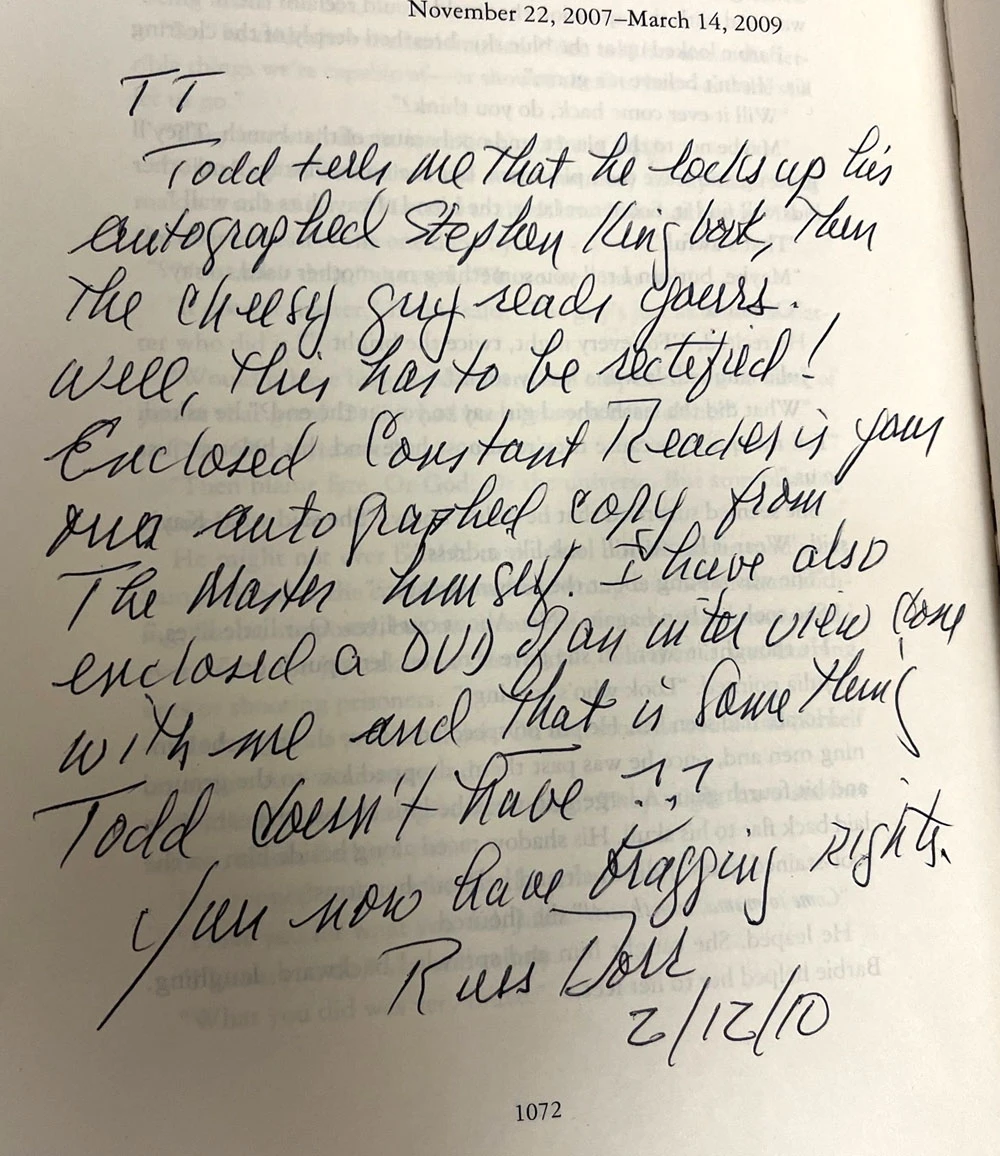 November 22, 2007–March 14, 2009
TT
Todd tells me that he locks up his
autographed Stephen King book, then
the cheesy guy reads yours.
Well, this has to be rectified!
Enclosed Constant Reader is your
own autographed copy from
The Master himself. I have also
enclosed a DVD of an interview done
with me and that is something
Todd doesn't have !!
You now have bragging rights.
Russ Dorr
2/12/10
1072